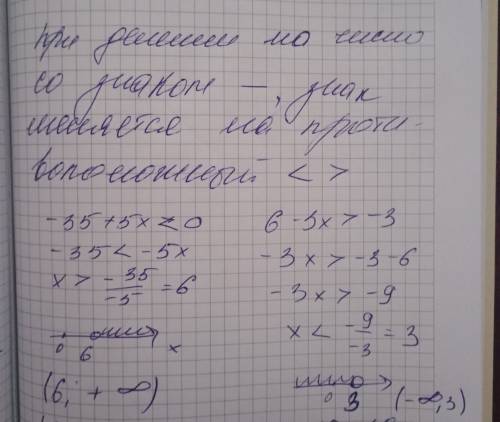 при делении на число
со знаком —, знак
меняется на проти-
воположный < >
-35+5x < 0
-35 < -5x
x > -35/-5 = 6
0 6 x
(6; + ∞)
6-3x > -3
-3x > -3-6
-3x > -9
x < -9/-3 = 3
0 3 (-∞,3)